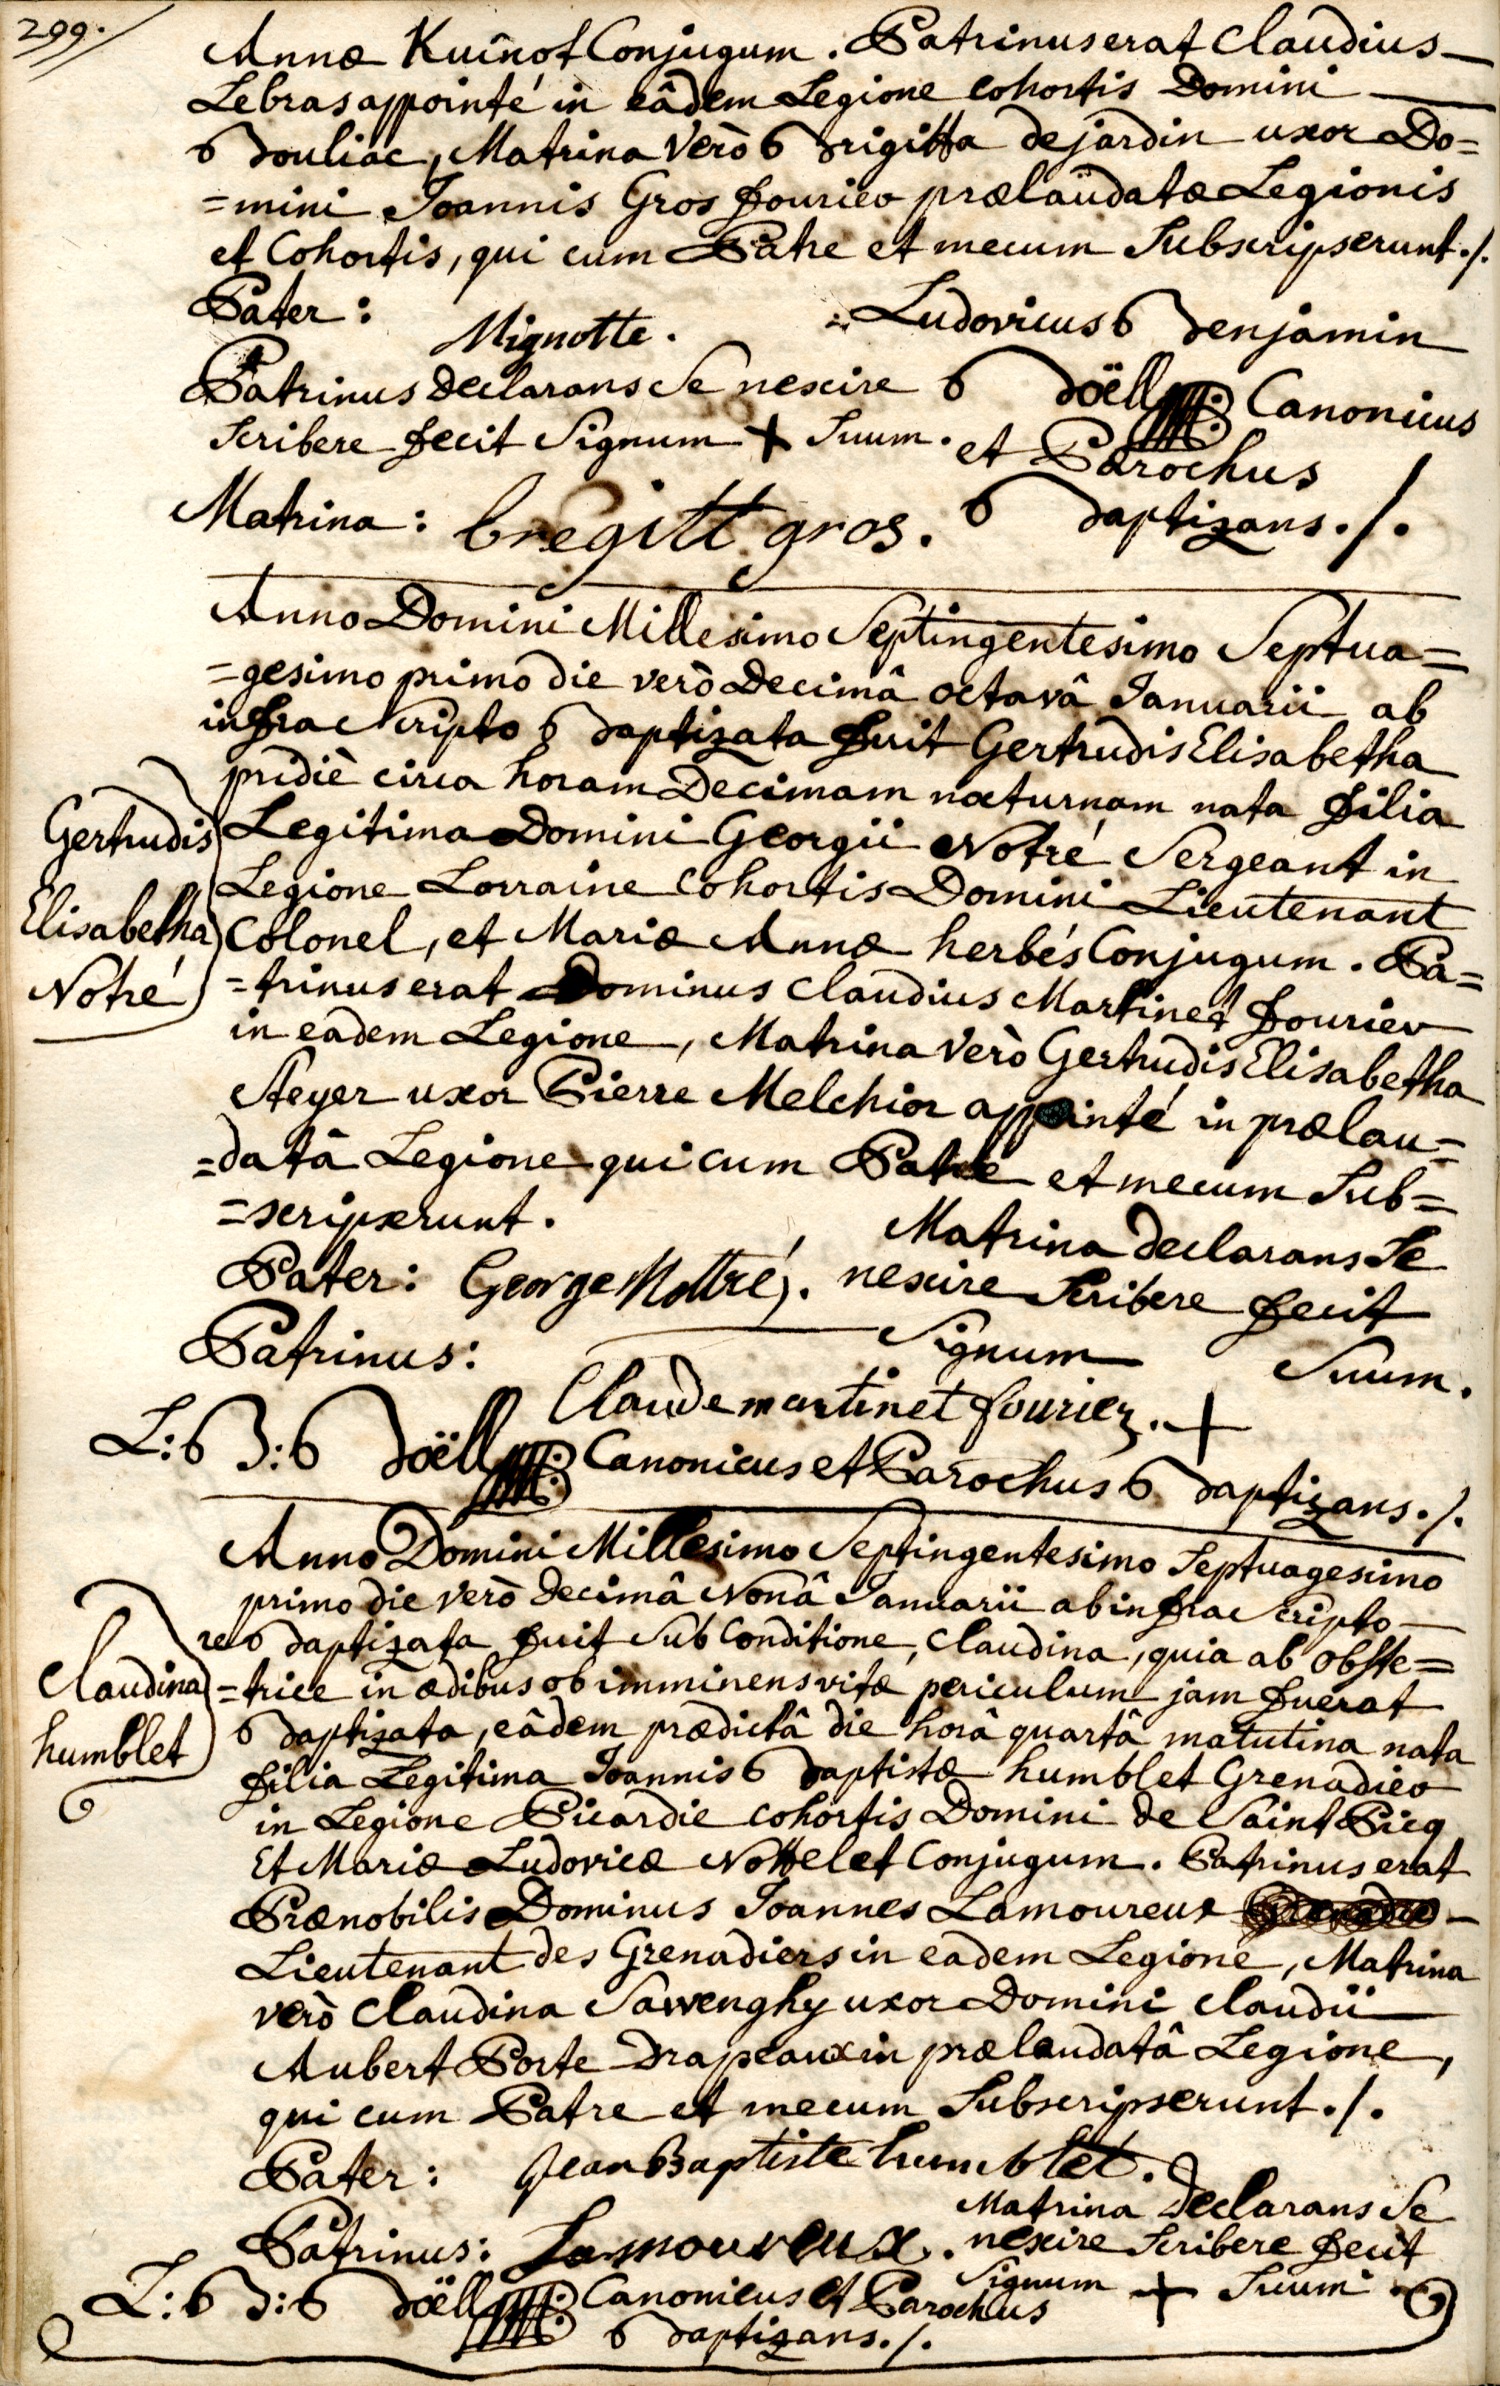 299.
Annæ Kuinot Conjugum. Patrinus erat Claudius
Lebras appointé in eâdem Legione cohortis Domini
Bouliac, Matrina verò Brigitta dejardin uxor Do=
=mini Joannis Gros fourier prælaudatæ Legionis
et Cohortis, qui cum Patre et mecum Subscripserunt./.
Pater: Mignotte.
Patrinus declarans Se nescire
Scribere fecit Signum + Suum.
Matrina: bregitt gros.
Ludovicus Benjamin
Boëll Canonicus
et Parochus
Baptizans./.
Anno Domini Millesimo Septingentesimo Septua=
=gesimo primo die verò Decimâ octavâ Januarii ab
infra Scripto Baptizata fuit Gertrudis Elisabetha
pridiè circa horam Decimam nocturnam nata filia
Legitima Domini Georgii Notré Sergeant in
Legione Lorraine Cohortis Domini Lieutenant
Colonel, et Mariæ Annæ herbés Conjugum. Pa=
=trinus erat Dominus Claudius Martinet fourier
in eadem Legione, Matrina verò Gertrudis Elisabetha
Steyer uxor Pierre Melchior appointé in prælau=
=datâ Legione qui cum Patre et mecum Sub=
=scripserunt.
Gertrudis
Elisabetha
Notré
Pater: George Nottré.
Matrina declarans Se
nescire Scribere fecit
Signum + Suum.
Patrinus: Claude martinet fourier.
L: B: Boëll Canonicus et Parochus Baptizans./.
Anno Domini Millesimo Septingentesimo Septuagesimo
primo die verò decimâ Nonâ Januarii ab infra Scripto
reBaptizata fuit Sub Conditione, Claudina, quia ab obste=
=trice in ædibus ob imminens vitæ periculum jam fuerat
Baptizata, eâdem prædictâ die horâ quartâ matutina nata
filia Legitima Joannis Baptistæ humblet Grenadier
in Legione Picardie cohortis Domini de Saint Picq
Et Mariæ Ludovicæ Nottelet Conjugum. Patrinus erat
Prænobilis Dominus Joannes Lamoureux
Lieutenant des Grenadiers in eadem Legione, Matrina
verò Claudina Sawenghy uxor Domini Claudii
Aubert Porte Drapeaux in prælaudatâ Legione,
qui cum Patre et mecum Subscripserunt./.
Claudina
humblet
Pater: Jean Baptiste humblet.
Matrina declarans Se
nescire Scribere fecit
Signum + Suum
Patrinus: Lamoureux.
L: B: Boëll Canonicus et Parochus
Baptizans./.